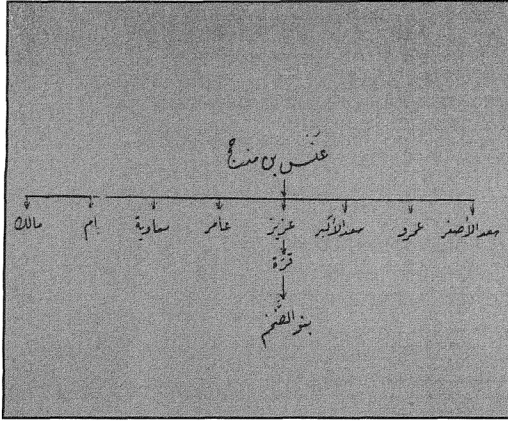 عَنْس بن مذحج
سعد الأصغر عمرو سعد الأكبر عزيز عامر معاوية يام مالك
قرّة
بنو الضَّخم